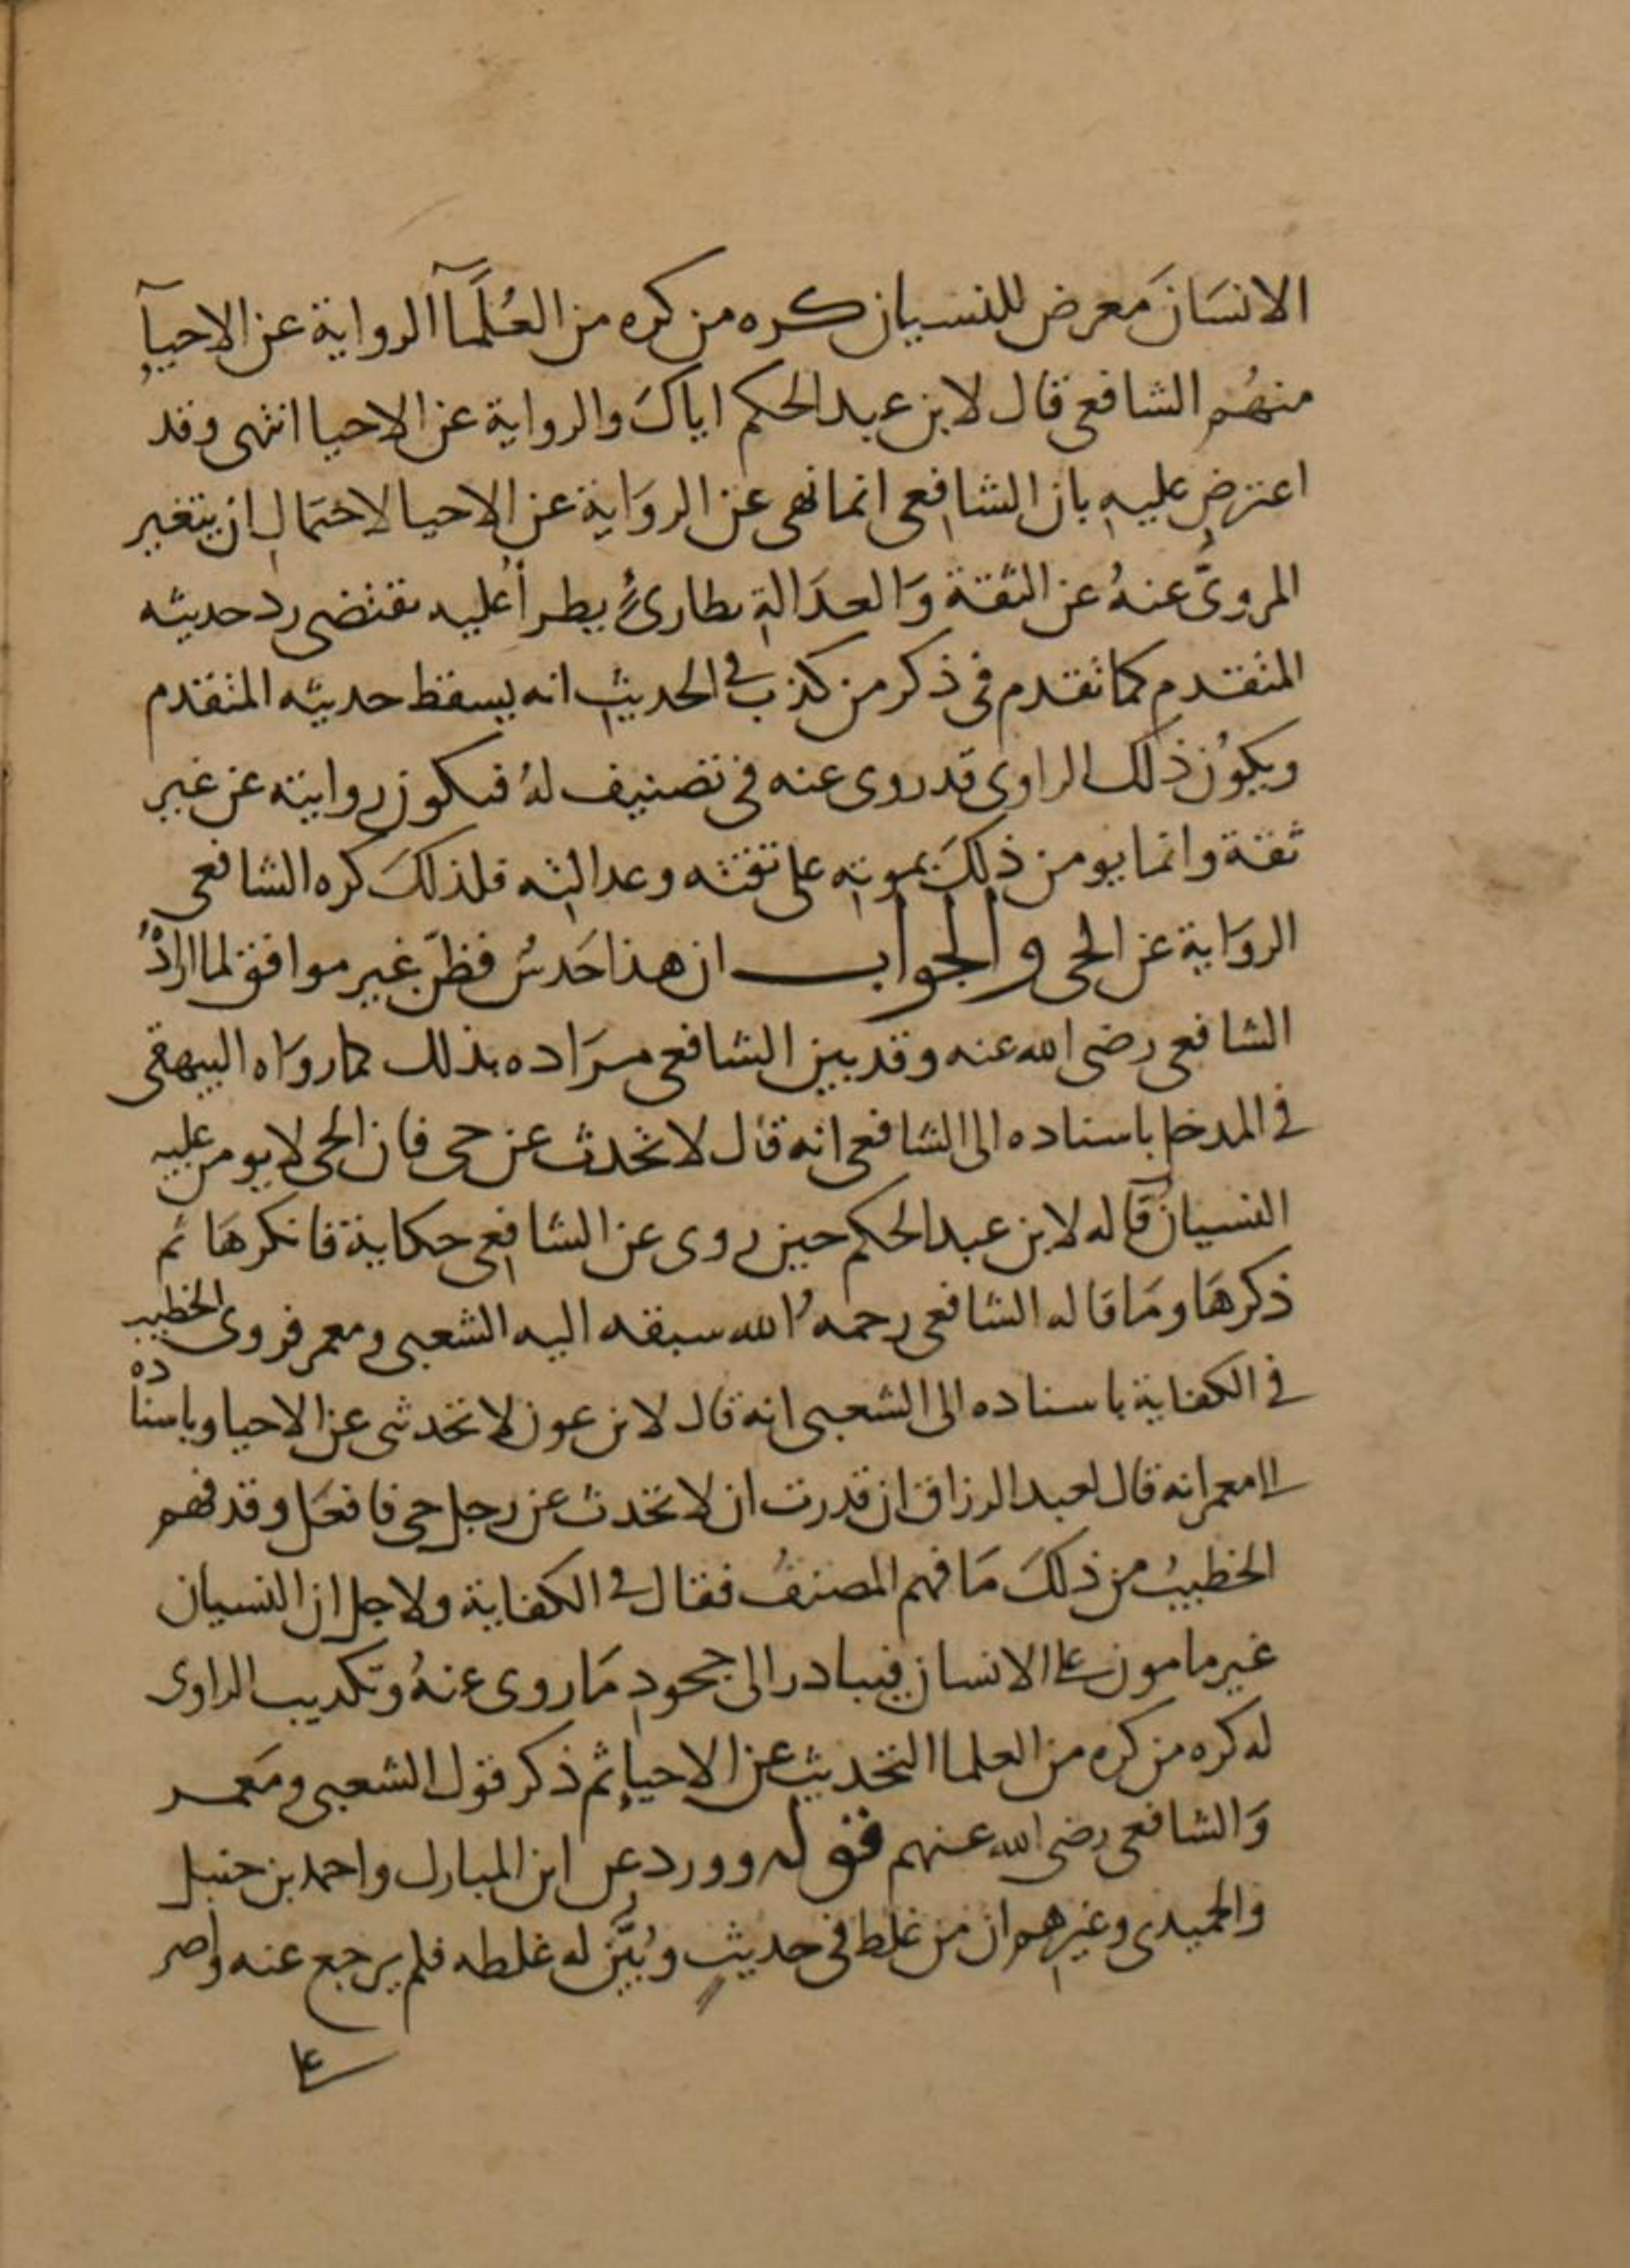 الانسَانَ معرض للنسيان كره من كره من العُلَمآ الرواية عن الاحيآءِ
منهُم الشافعى قال لابن عبد الحكم اياكَ والرواية عن الاحيا انتهى وقد
اعترض عليهِ بان الشافعى انما نهى عن الروَاية عن الاحيا لاحتمالِ ان يتغير
المروىُّ عنهُ عن الثقة وَالعدَالةِ بطارئٍ يطرأُ عليه يقتضى رد حديثه
المتقدم كما تقدم فى ذكر من كذب فى الحديثِ انه يسقط حديثه المتقدم
ويكوُن ذلك الراوى قد روى عنه فى تصنيف لهُ فيكون روايته عن غير
ثقة وانما يومن ذلكَ بموتهِ على ثقته وعدالتِه فلذلكَ كره الشافعى
الروَاية عن الحى والجواب ان هذا حَدسٌ فظنّ غير موافق لما ارادهُ
الشافعى رضى الله عنه وقد بين الشافعى مرَاده بذلك كما روَاه البيهقى
فى المدخل باسناده الى الشافعى انه قال لا تحدث عن حى فان الحى لا يومن عليه
النسيانُ قاله لابن عبد الحكم حين روى عن الشافعى حكاية فانكرهَا ثم
ذكرهَا ومَا قاله الشافعى رحمهُ الله سبقه اليه الشعبى ومعمر فروى الخطيب
فى الكفاية باسناده الى الشعبى انه قال لابن عون لا تحدثنى عن الاحيا وباسناده
الى معمر انه قال لعبد الرزاق ان قدرت ان لا تحدث عن رجل حى فافعَل وقد فهم
الخطيبُ من ذلكَ مَا فهم المصنفُ فقال فى الكفاية ولاجل ان النسيان
غير مامون على الانسان فيبادر الى جحودِ مَا روى عنهُ وتكذيب الراوى
له كره من كره من العلما التحديث عن الاحياءِ ثم ذكر قول الشعبى ومَعمر
وَالشافعى رضى الله عنهم قوله وورد عن ابن المبارك واحمد بن حنبل
والحميدى وغيرِهم ان من غلط فى حديثٍ وبُيّنَ له غلطه فلم يرجع عنه واصر
على